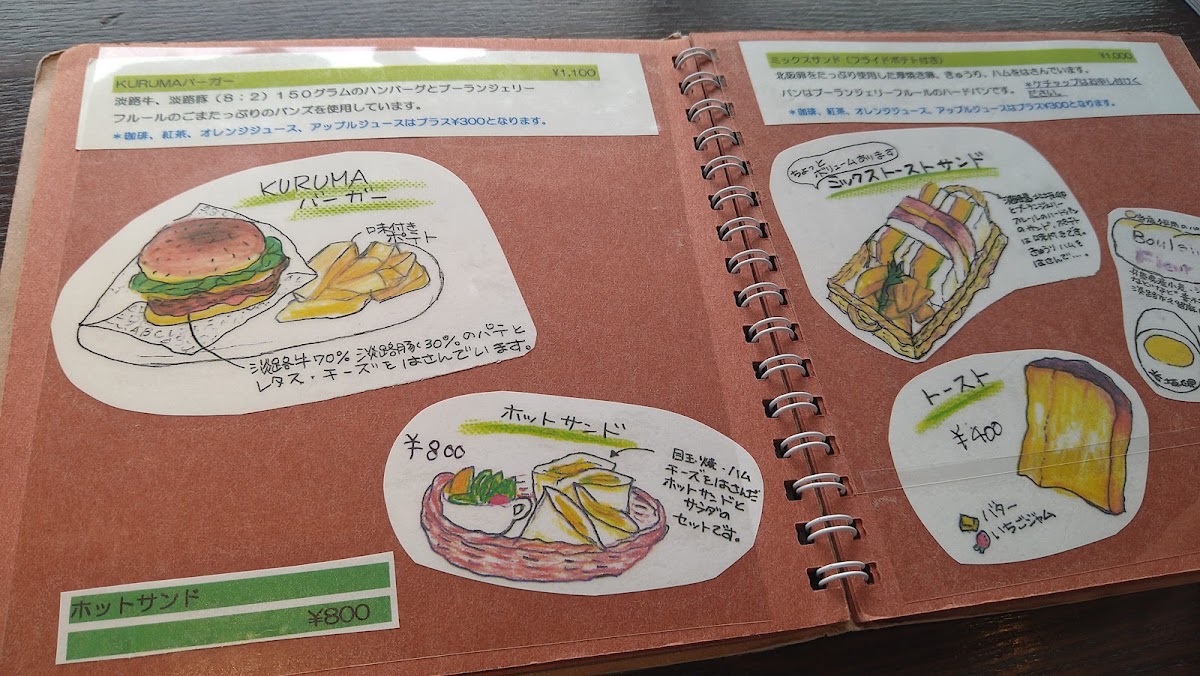 KURUMAバーガー ¥1,100
淡路牛、淡路豚(8:2)150グラムのハンバーグとブーランジェリー
フルールのごまたっぷりのバンズを使用しています。
*珈琲、紅茶、オレンジジュース、アップルジュースはプラス¥300となります。
KURUMA
バーガー
味付き
ポテト
ABC
淡路牛70% 淡路豚30%のパテと
レタス・チーズをはさんでいます。
ホットサンド
¥800
目玉焼・ハム
チーズをはさんだ
ホットサンドと
サラダの
セットです。
ホットサンド
¥800
ミックスサンド(フライドポテト付き) ¥1,000
北坂卵をたっぷり使用した厚焼き卵、きゅうり、ハムをはさんでいます。
パンはブーランジェリーフルールのハードパンです。 *ケチャップはお申し付けく
ださい。
*珈琲、紅茶、オレンジジュース、アップルジュースはプラス¥300となります。
ちょっと
ボリュームあります
ミックストーストサンド
とブーランジェリー
フルールのハードパン
のサンド ポテト
は味付きです。
きゅうりハムを
はさんで…。
トースト
¥400
バター
いちごジャム